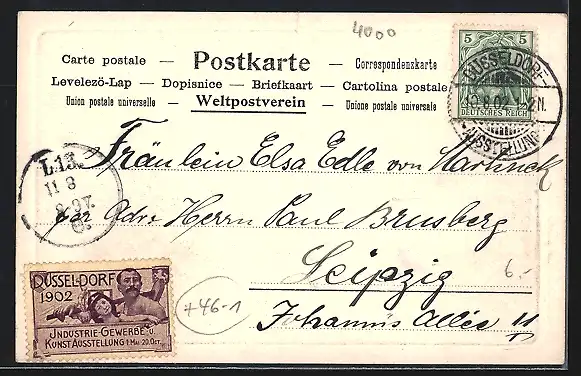 4000
Carte postale — Postkarte — Correspondenzkarte
Levelezö-Lap — Dopisnice — Briefkaart — Cartolina postale
Union postale universelle — Weltpostverein — Unione postale universale
5 5
DEUTSCHES REICH
DÜSSELDORF
10.8.02 1-2N.
AUSSTELLUNG
Fräulein Elsa Edle von
L.13.
11 8
8-9V.
per Adr. Herrn Paul Brusberg
Leipzig
6.-
Johannis Allée 11
+46-1
DÜSSELDORF
1902
INDUSTRIE-GEWERBE-U.
KUNST AUSSTELLUNG 1. MAI 20. OCT.